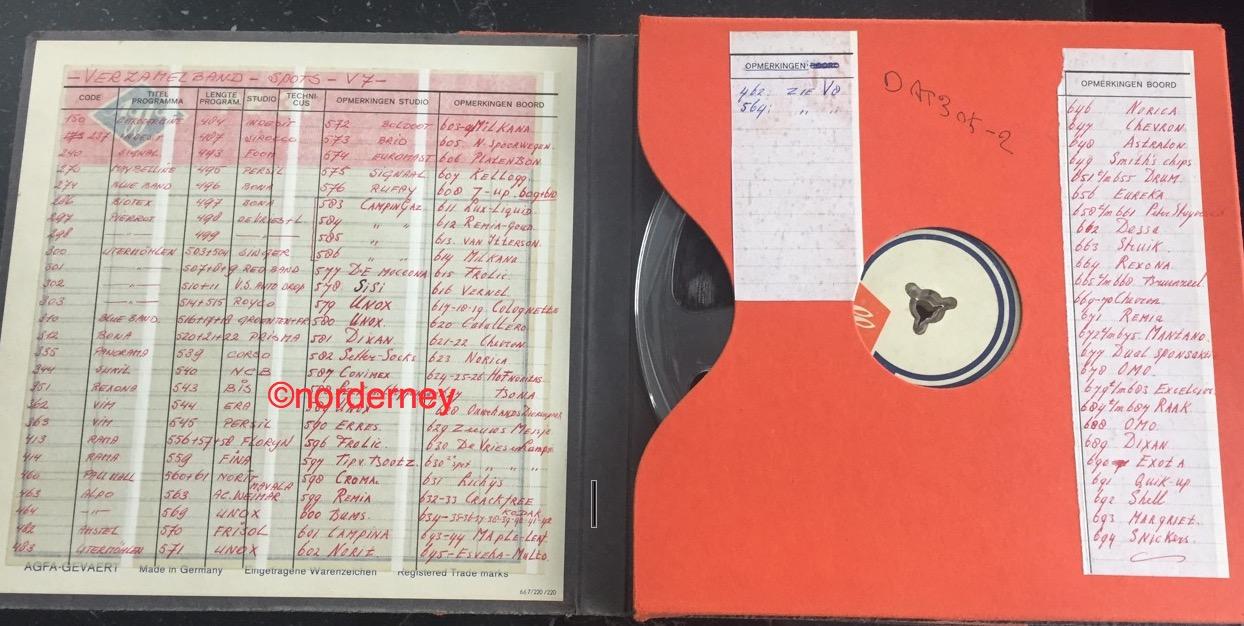 -VERZAMELBAND - SPOTS - V7-
CODE TITEL PROGRAMMA LENGTE PROGRAM. STUDIO TECHNI-CUS OPMERKINGEN STUDIO OPMERKINGEN BOORD
150 484 INDESIT 572 BOLDOOT 603-04 MILKANA
487 SIROCCO 573 BRIO 605 N. SPOORWEGEN.
240 SIGNAL 493 FOOM 574 EUROMAST 606 PLATENBON.
270 MAYBELLINE 495 PERSIL 575 SIGNAAL 607 KELLOGG.
274 BLUE BAND 496 BONA 576 RUFAY 608 7-up. 609+610
286 BIOTEX 497 BONA 583 CAMPINGAZ 611 Lux-Liquid.
297 PIERROT 498 DEVRIES+L 584 " " 612 REMIA-Goud.
298 —"— 499 —"— 585 " 613. VAN ITTERSON.
300 UTERMÖHLEN 503+504 SINGER 586 " " 614 MILKANA
301 —"— RED BAND 577 DE MOCCONA 615 FROLIC.
302 —"— 510+11 V.S. AUTO DROP 578 SiSi 616 VERNEL.
303 —"— 514+515 ROYCO 579 UNOX 617-18-19. Colognette
310 BLUE BAND. 516+17+18 GROENTEN+FR. 580 UNOX. 620 Caballero.
312 BONA 520+21+22 PRISMA 581 DIXAN 621-22 Chevron.
335 PANORAMA 539 CORSO 582 Setter-Socks 623 NORICA
344 SUNIL 540 NCB 587 CONIMEX 624-25-26
351 REXONA 543 BiS BONA
362 VIM 544 ERA
363 VIM 545 PERSIL 590 ERRES. 629 Zeeuws Meisje
413 RAMA 556+57+58 FLORYN 596 FROLIC. 630 De Vries
414 RAMA 559 FINA 597 Tip v. Bootz. 630 " " "
460 PALL MALL 560+61 NORIT MAVALA 598 CROMA. 631 Richys
463 ALPO 563 AC. WEIMAR 599 REMIA 632-33 CRACKFREE
464 —"— 569 UNOX 600 BUMS. 634-35-36-37-38-39-40-41-42 KODAK
482 AMSTEL 570 FRISOL 601 CAMPINA 643-44 MAPLE-LEAF
483 UTERMÖHLEN 571 UNOX 602 NORIT. 645-ESVEHA-Multo.
AGFA-GEVAERT Made in Germany Eingetragene Warenzeichen Registered Trade marks
667/220/220
©norderney
OPMERKINGEN BOORD
462: ZIE V8
564: " "
DAT305-2
OPMERKINGEN BOORD
646 NORICA.
647 CHEVRON.
648 ASTRALON.
649 Smith's chips
651 t/m 655 DRUM.
656 EUREKA.
658 t/m 661 Peter Stuyvesant
662 Dossa
663 Struik.
664 REXONA.
665 t/m 668. Bruynzeel.
669-70 Chevron.
671 REMIA
672 t/m 675. MANZANO.
677 Dual
678 OMO.
679 t/m 683 EXCELSIOR
684 t/m 687 RAAK.
688 OMO.
689 DIXAN.
690 EXOTA
691 Quik-up
692 Shell
693 MARGRIET.
694 SNICKERS.